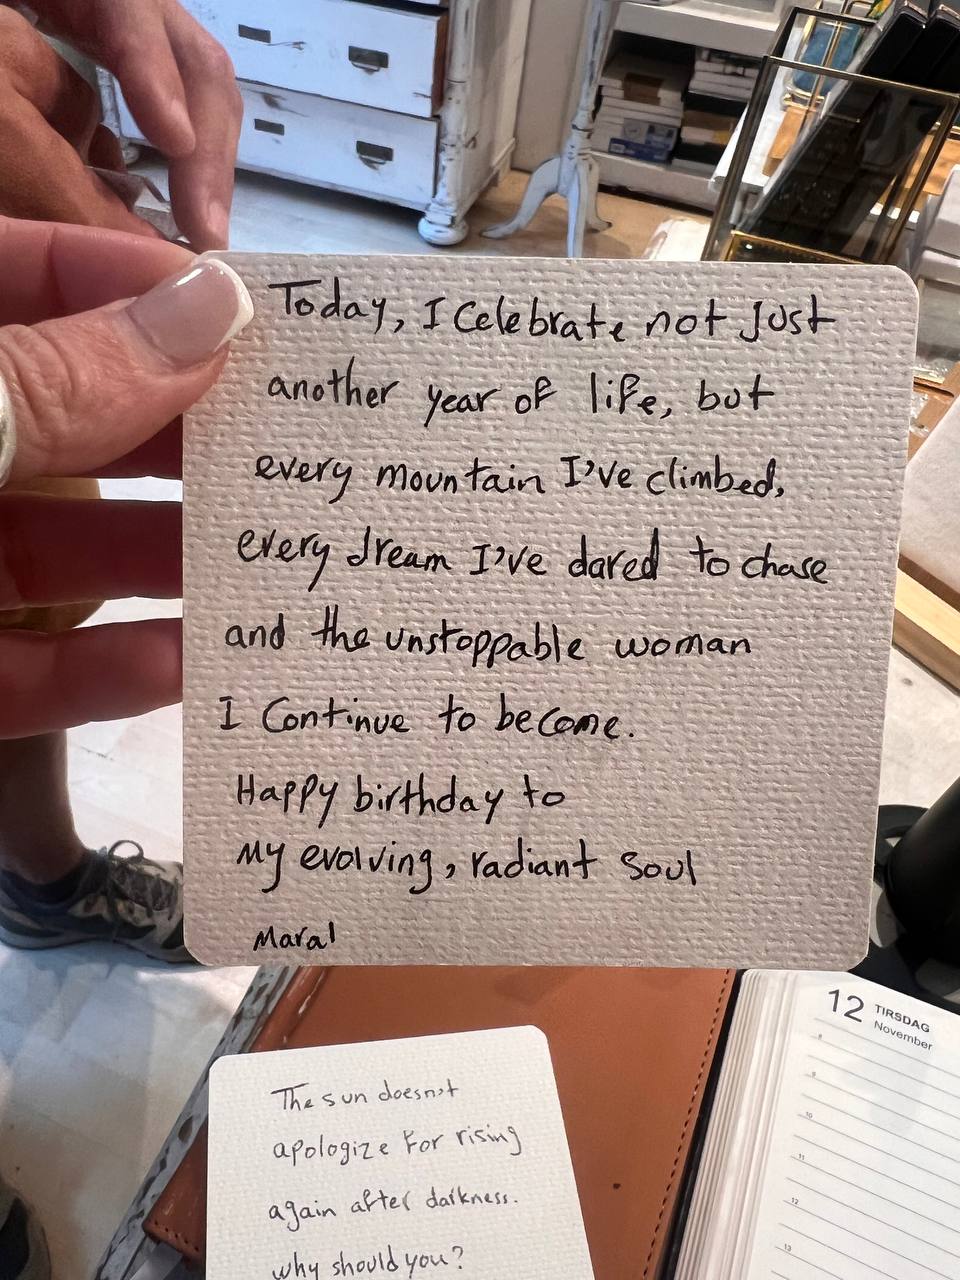 Today, I Celebrate not Just
another year of life, but
every mountain I've climbed,
every dream I've dared to chase
and the unstoppable woman
I Continue to become.
Happy birthday to
My evolving, radiant Soul
Maral
The sun doesn't
apologize for rising
again after darkness.
why should you?
12 TIRSDAG
November
8
9
10
11
12
13